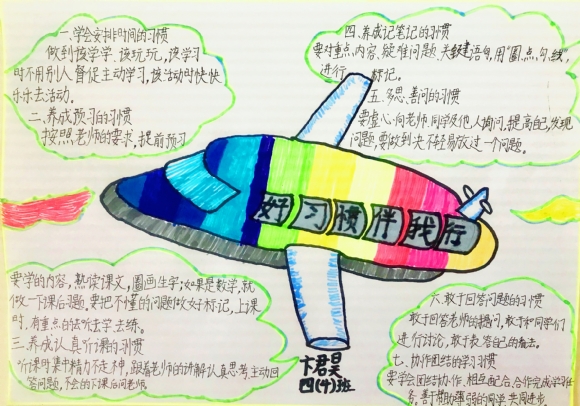 一、学会安排时间的习惯
做到该学学、该玩玩,该学习
时不用别人督促主动学习,该活动时快快
乐乐去活动。
二、养成预习的习惯
按照老师的要求,提前预习
要学的内容,熟读课文,圈画生字;如果是数学,就
做一下课后习题。要把不懂的问题做好标记,上课
时,有重点的去听去学、去练。
三、养成认真听课的习惯
听课时集中精力不走神,跟着老师的讲解认真思考、主动回
答问题,不会的下课后问老师
四、养成记笔记的习惯
要对重点、内容、疑难问题、关键语句,用“圈、点、勾、线”,
进行 标记。
五、多思、善问的习惯
要虚心向老师、同学及他人询问,提高自己,发现
问题,要做到决不轻易放过一个问题。
好习惯伴我行
六、敢于回答问题的习惯
敢于回答老师的提问,敢于和同学们
进行讨论,敢于表答自己的看法。
七、协作团结的学习习惯
要学会团结协作、相互配合,合作完成学习任
务,善于帮助薄弱的同学,共同进步
卞君昊
四(4)班